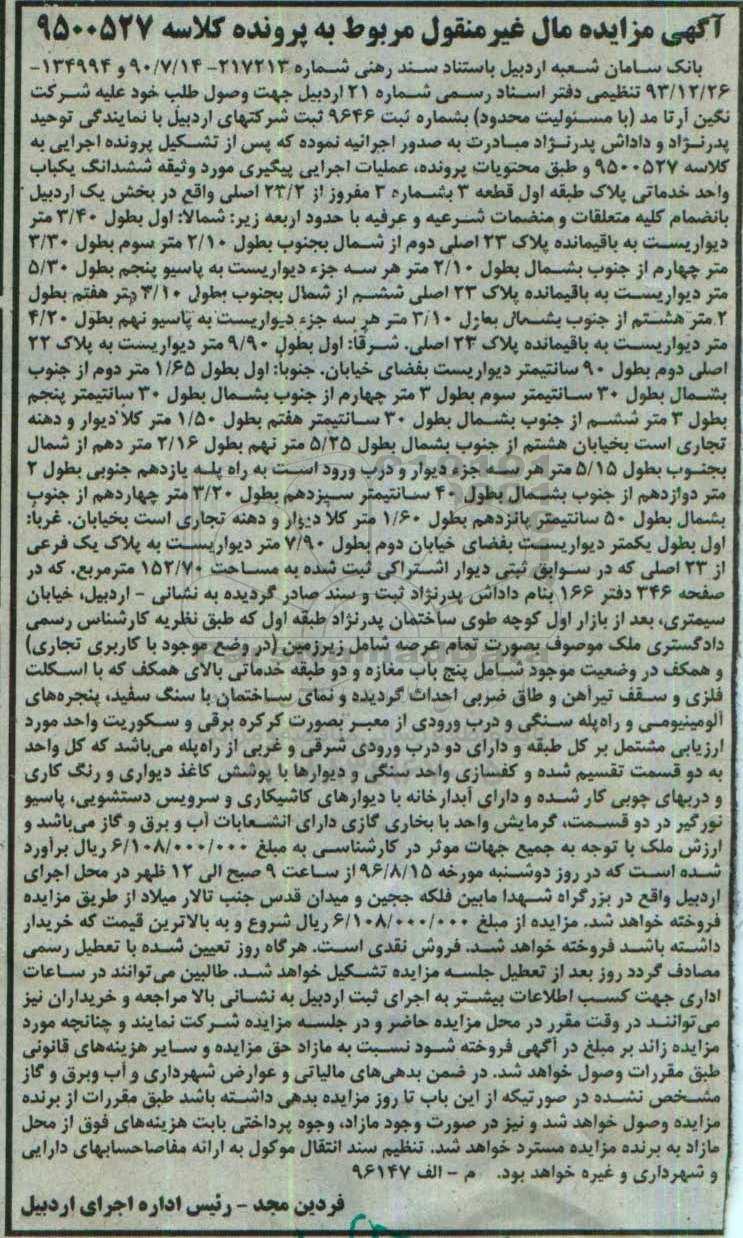 آگهی مزایده مال غیرمنقول مربوط به پرونده کلاسه ۹۵۰۰۵۲۷
بانک سامان شعبه اردبیل باستناد سند رهنی شماره ۲۱۷۲۱۳- ۹۰/۷/۱۴ و ۱۳۴۹۹۴-
۹۳/۱۲/۲۶ تنظیمی دفتر اسناد رسمی شماره ۲۱ اردبیل جهت وصول طلب خود علیه شرکت
نگین آرتا مد (با مسئولیت محدود) بشماره ثبت ۹۶۴۶ ثبت شرکتهای اردبیل با نمایندگی توحید
پدرنژاد و داداش پدرنژاد مبادرت به صدور اجرائیه نموده که پس از تشکیل پرونده اجرایی به
کلاسه ۹۵۰۰۵۲۷ و طبق محتویات پرونده، عملیات اجرایی پیگیری مورد وثیقه ششدانگ یکباب
واحد خدماتی پلاک طبقه اول قطعه ۳ بشماره ۲ مفروز از ۲۳/۲ اصلی واقع در بخش یک اردبیل
بانضمام کلیه متعلقات و منضمات شرعیه و عرفیه با حدود اربعه زیر: شمالا: اول بطول ۳/۴۰ متر
دیواریست به باقیمانده پلاک ۲۳ اصلی دوم از شمال بجنوب بطول ۲/۱۰ متر سوم بطول ۳/۳۰
متر چهارم از جنوب بشمال بطول ۲/۱۰ متر هر سه جزء دیواریست به پاسیو پنجم بطول ۵/۳۰
متر دیواریست به باقیمانده پلاک ۲۳ اصلی ششم از شمال بجنوب بطول ۳/۱۰ متر هفتم بطول
۲ متر هشتم از جنوب بشمال بطول ۳/۱۰ متر هر سه جزء دیواریست به پاسیو نهم بطول ۴/۲۰
متر دیواریست به باقیمانده پلاک ۲۳ اصلی. شرقا: اول بطول ۹/۹۰ متر دیواریست به پلاک ۲۲
اصلی دوم بطول ۹۰ سانتیمتر دیواریست بفضای خیابان. جنوبا: اول بطول ۱/۶۵ متر دوم از جنوب
بشمال بطول ۳۰ سانتیمتر سوم بطول ۳ متر چهارم از جنوب بشمال بطول ۳۰ سانتیمتر پنجم
بطول ۳ متر ششم از جنوب بشمال بطول ۳۰ سانتیمتر هفتم بطول ۱/۵۰ متر کلا دیوار و دهنه
تجاری است بخیابان هشتم از جنوب بشمال بطول ۵/۲۵ متر نهم بطول ۲/۱۶ متر دهم از شمال
بجنوب بطول ۵/۱۵ متر هر سه جزء دیوار و درب ورود است به راه پله یازدهم جنوبی بطول ۲
متر دوازدهم از جنوب بشمال بطول ۴۰ سانتیمتر سیزدهم بطول ۳/۲۰ متر چهاردهم از جنوب
بشمال بطول ۵۰ سانتیمتر پانزدهم بطول ۱/۶۰ متر کلا دیوار و دهنه تجاری است بخیابان. غربا:
اول بطول یکمتر دیواریست بفضای خیابان دوم بطول ۷/۹۰ متر دیواریست به پلاک یک فرعی
از ۲۳ اصلی که در سوابق ثبتی دیوار اشتراکی ثبت شده به مساحت ۱۵۲/۷۰ مترمربع. که در
صفحه ۳۴۶ دفتر ۱۶۶ بنام داداش پدرنژاد ثبت و سند صادر گردیده به نشانی - اردبیل، خیابان
سیمتری، بعد از بازار اول کوچه طوی ساختمان پدرنژاد طبقه اول که طبق نظریه کارشناس رسمی
دادگستری ملک موصوف بصورت تمام عرصه شامل زیرزمین (در وضع موجود با کاربری تجاری)
و همکف در وضعیت موجود شامل پنج باب مغازه و دو طبقه خدماتی بالای همکف که با اسکلت
فلزی و سقف تیرآهن و طاق ضربی احداث گردیده و نمای ساختمان با سنگ سفید، پنجره‌های
آلومینیومی و راه‌پله سنگی و درب ورودی از معبر بصورت کرکره برقی و سکوریت واحد مورد
ارزیابی مشتمل بر کل طبقه و دارای دو درب ورودی شرقی و غربی از راه‌پله می‌باشد که کل واحد
به دو قسمت تقسیم شده و کفسازی واحد سنگی و دیوارها با پوشش کاغذ دیواری و رنگ کاری
و دربهای چوبی کار شده و دارای آبدارخانه با دیوارهای کاشیکاری و سرویس دستشویی، پاسیو
نورگیر در دو قسمت، گرمایش واحد با بخاری گازی دارای انشعابات آب و برق و گاز می‌باشد و
ارزش ملک با توجه به جمیع جهات موثر در کارشناسی به مبلغ ۶/۱۰۸/۰۰۰/۰۰۰ ریال برآورد
شده است که در روز دوشنبه مورخه ۹۶/۸/۱۵ از ساعت ۹ صبح الی ۱۲ ظهر در محل اجرای
اردبیل واقع در بزرگراه شهدا مابین فلکه ججین و میدان قدس جنب تالار میلاد از طریق مزایده
فروخته خواهد شد. مزایده از مبلغ ۶/۱۰۸/۰۰۰/۰۰۰ ریال شروع و به بالاترین قیمت که خریدار
داشته باشد فروخته خواهد شد. فروش نقدی است. هرگاه روز تعیین شده با تعطیل رسمی
مصادف گردد روز بعد از تعطیل جلسه مزایده تشکیل خواهد شد. طالبین می‌توانند در ساعات
اداری جهت کسب اطلاعات بیشتر به اجرای ثبت اردبیل به نشانی بالا مراجعه و خریداران نیز
می‌توانند در وقت مقرر در محل مزایده حاضر و در جلسه مزایده شرکت نمایند و چنانچه مورد
مزایده زائد بر مبلغ در آگهی فروخته شود نسبت به مازاد حق مزایده و سایر هزینه‌های قانونی
طبق مقررات وصول خواهد شد. در ضمن بدهی‌های مالیاتی و عوارض شهرداری و آب وبرق و گاز
مشخص نشده در صورتیکه از این باب تا روز مزایده بدهی داشته باشد طبق مقررات از برنده
مزایده وصول خواهد شد و نیز در صورت وجود مازاد، وجوه پرداختی بابت هزینه‌های فوق از محل
مازاد به برنده مزایده مسترد خواهد شد. تنظیم سند انتقال موکول به ارائه مفاصاحسابهای دارایی
و شهرداری و غیره خواهد بود. م - الف ۹۶۱۴۷
فردین مجد - رئیس اداره اجرای اردبیل